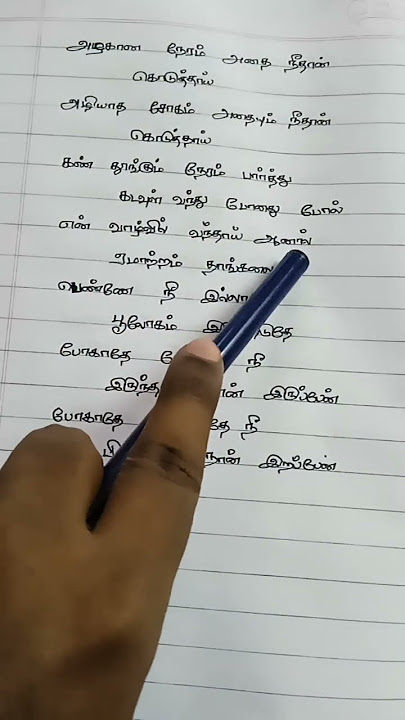 அழகான நேரம் அதை நீதான்
கொடுத்தாய்
அழியாத சோகம் அதையும் நீதான்
கொடுத்தாய்
கண் தூங்கும் நேரம் பார்த்து
கடவுள் வந்து போனது போல்
என் வாழ்வில் வந்தாய் ஆனால்
ஏமாற்றம் தாங்கலை
பெண்ணே நீ
பூலோகம்
போகாதே நீ
இருப்பேன்
போகாதே நீ
நான் இறப்பேன்